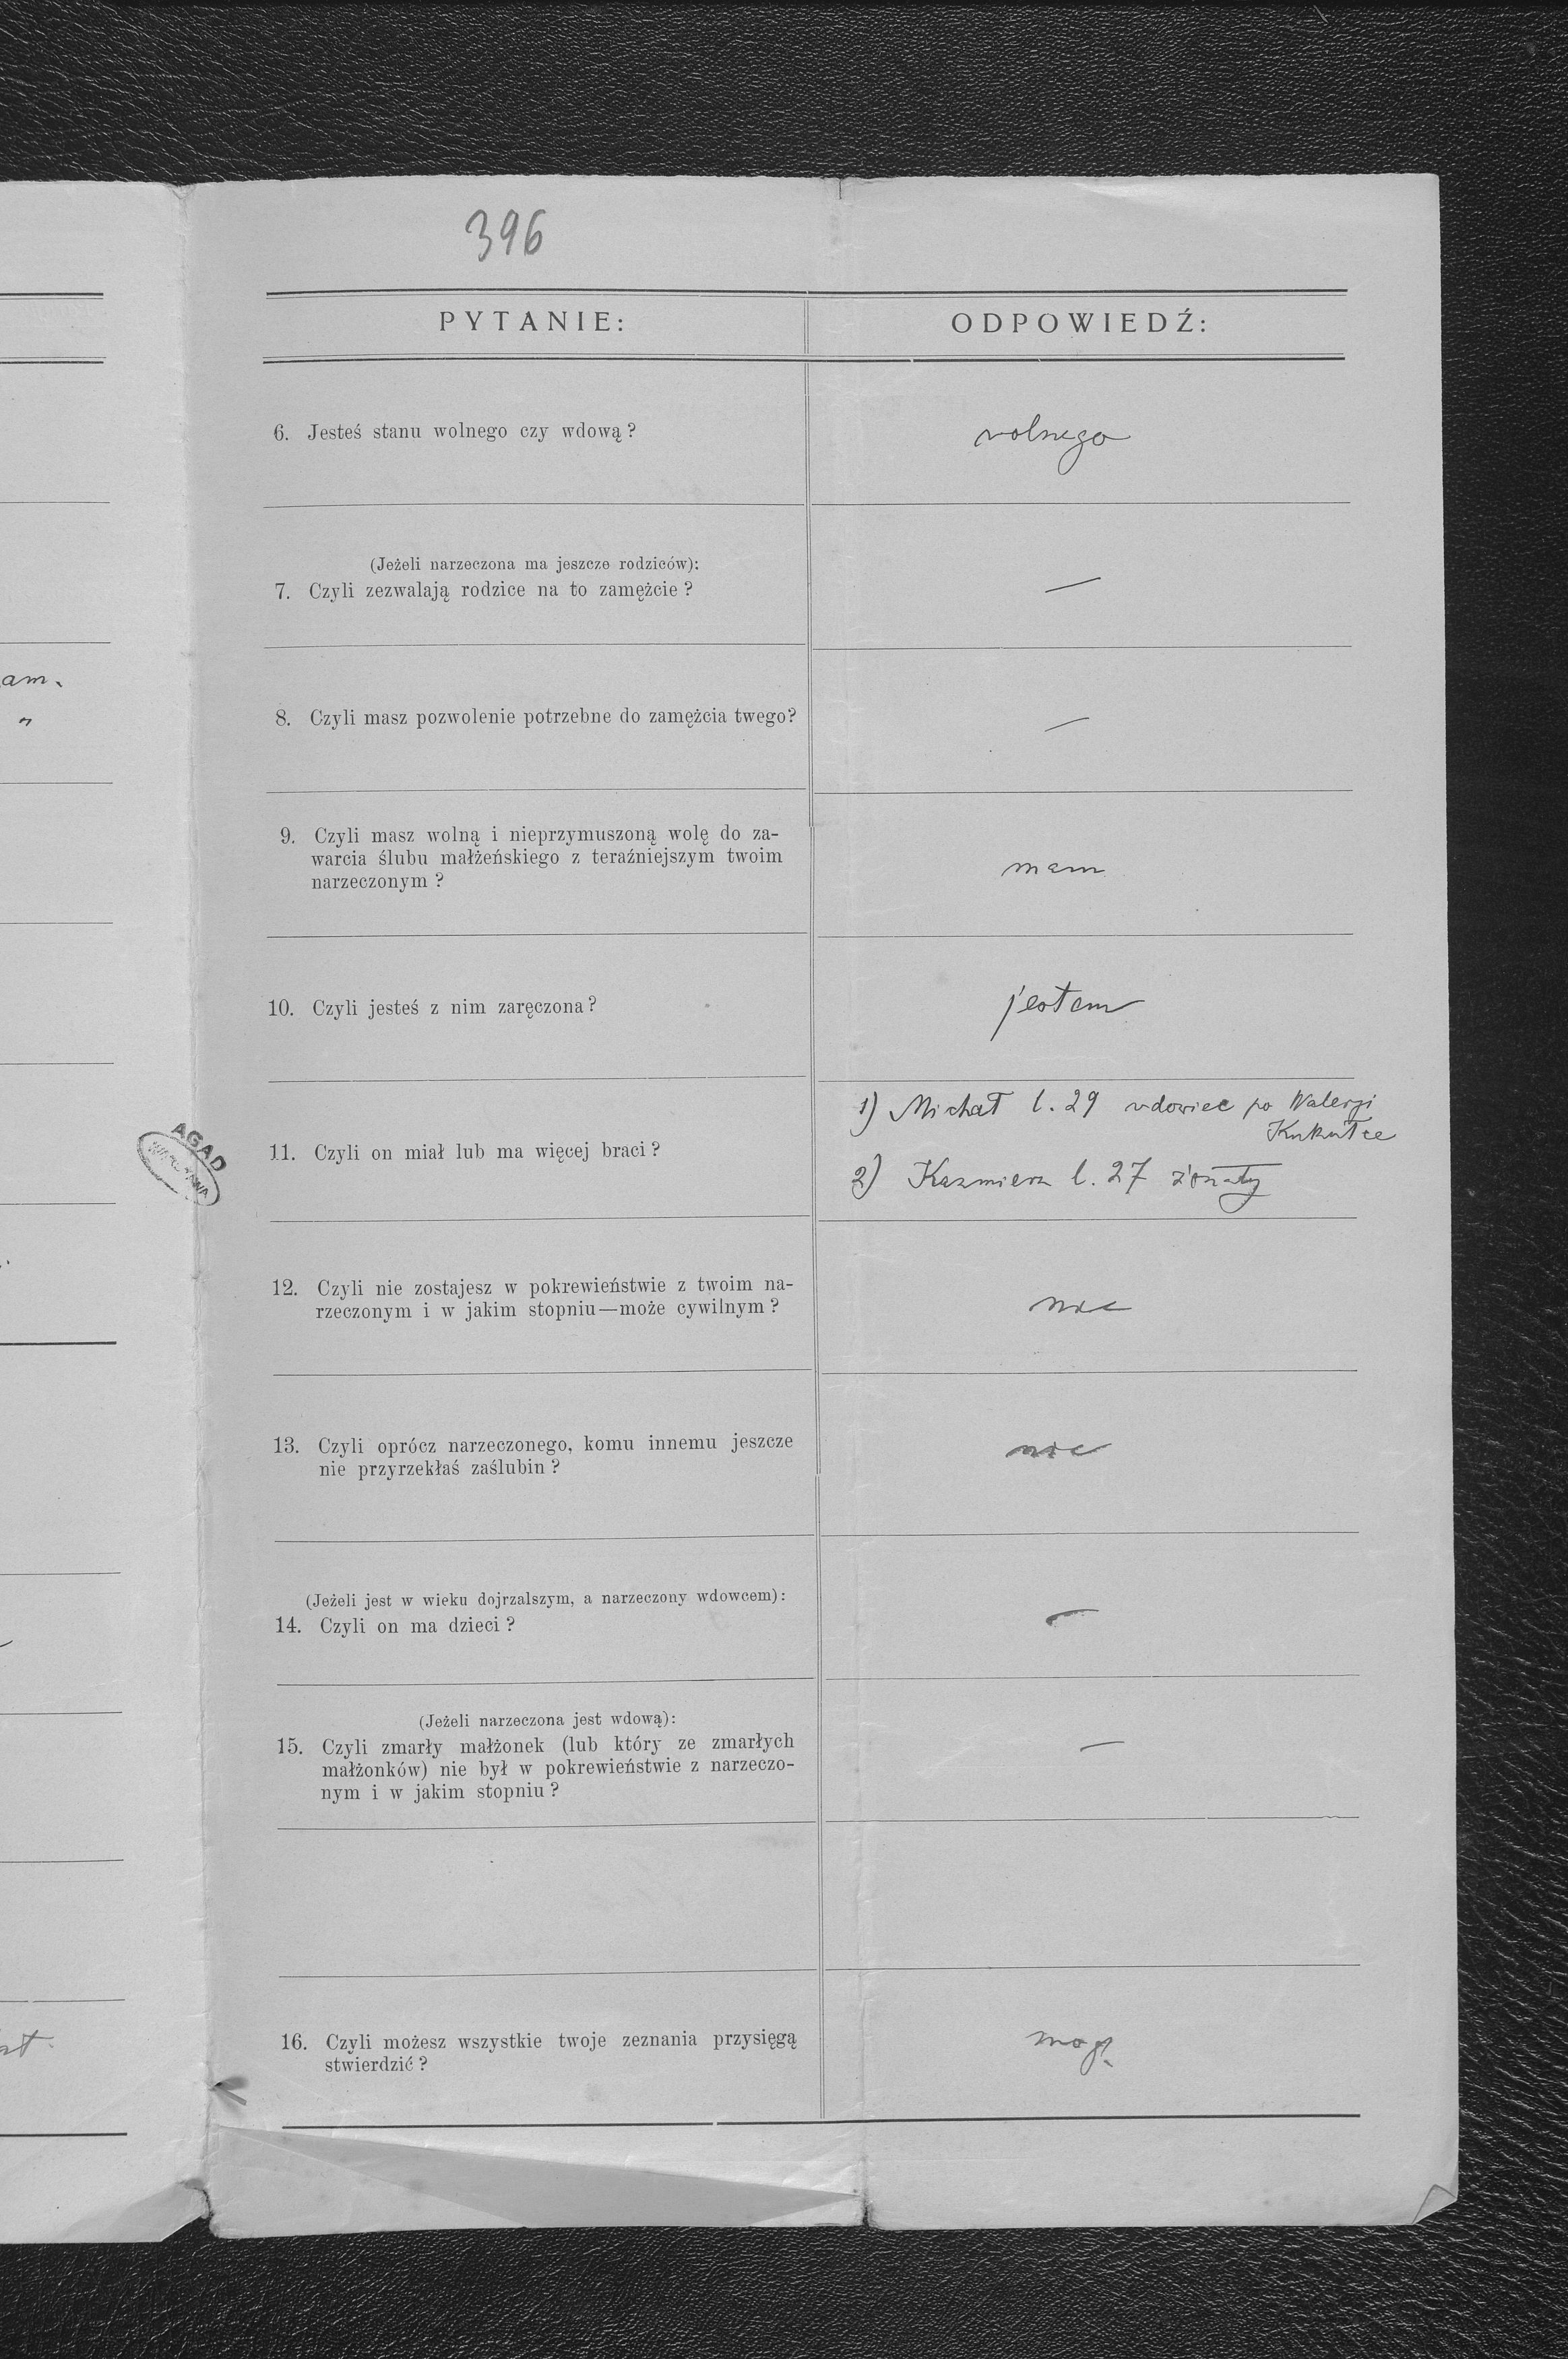 396
PYTANIE:
ODPOWIEDŹ:
6. Jesteś stanu wolnego czy wdową?
wolnego
(Jeżeli narzeczona ma jeszcze rodziców):
7. Czyli zezwalają rodzice na to zamężcie?
—
am.
"
8. Czyli masz pozwolenie potrzebne do zamężcia twego?
—
9. Czyli masz wolną i nieprzymuszoną wolę do za-
warcia ślubu małżeńskiego z teraźniejszym twoim
narzeczonym?
mam
10. Czyli jesteś z nim zaręczona?
jestem
AGAD
11. Czyli on miał lub ma więcej braci?
1) Michał l. 29 wdowiec po Waleryi
Kukułce
2) Kazmierz l. 27 żonaty
12. Czyli nie zostajesz w pokrewieństwie z twoim na-
rzeczonym i w jakim stopniu—może cywilnym?
nie
13. Czyli oprócz narzeczonego, komu innemu jeszcze
nie przyrzekłaś zaślubin?
nie
(Jeżeli jest w wieku dojrzalszym, a narzeczony wdowcem):
14. Czyli on ma dzieci?
—
(Jeżeli narzeczona jest wdową):
15. Czyli zmarły małżonek (lub który ze zmarłych
małżonków) nie był w pokrewieństwie z narzeczo-
nym i w jakim stopniu?
—
16. Czyli możesz wszystkie twoje zeznania przysięgą
stwierdzić?
mogę